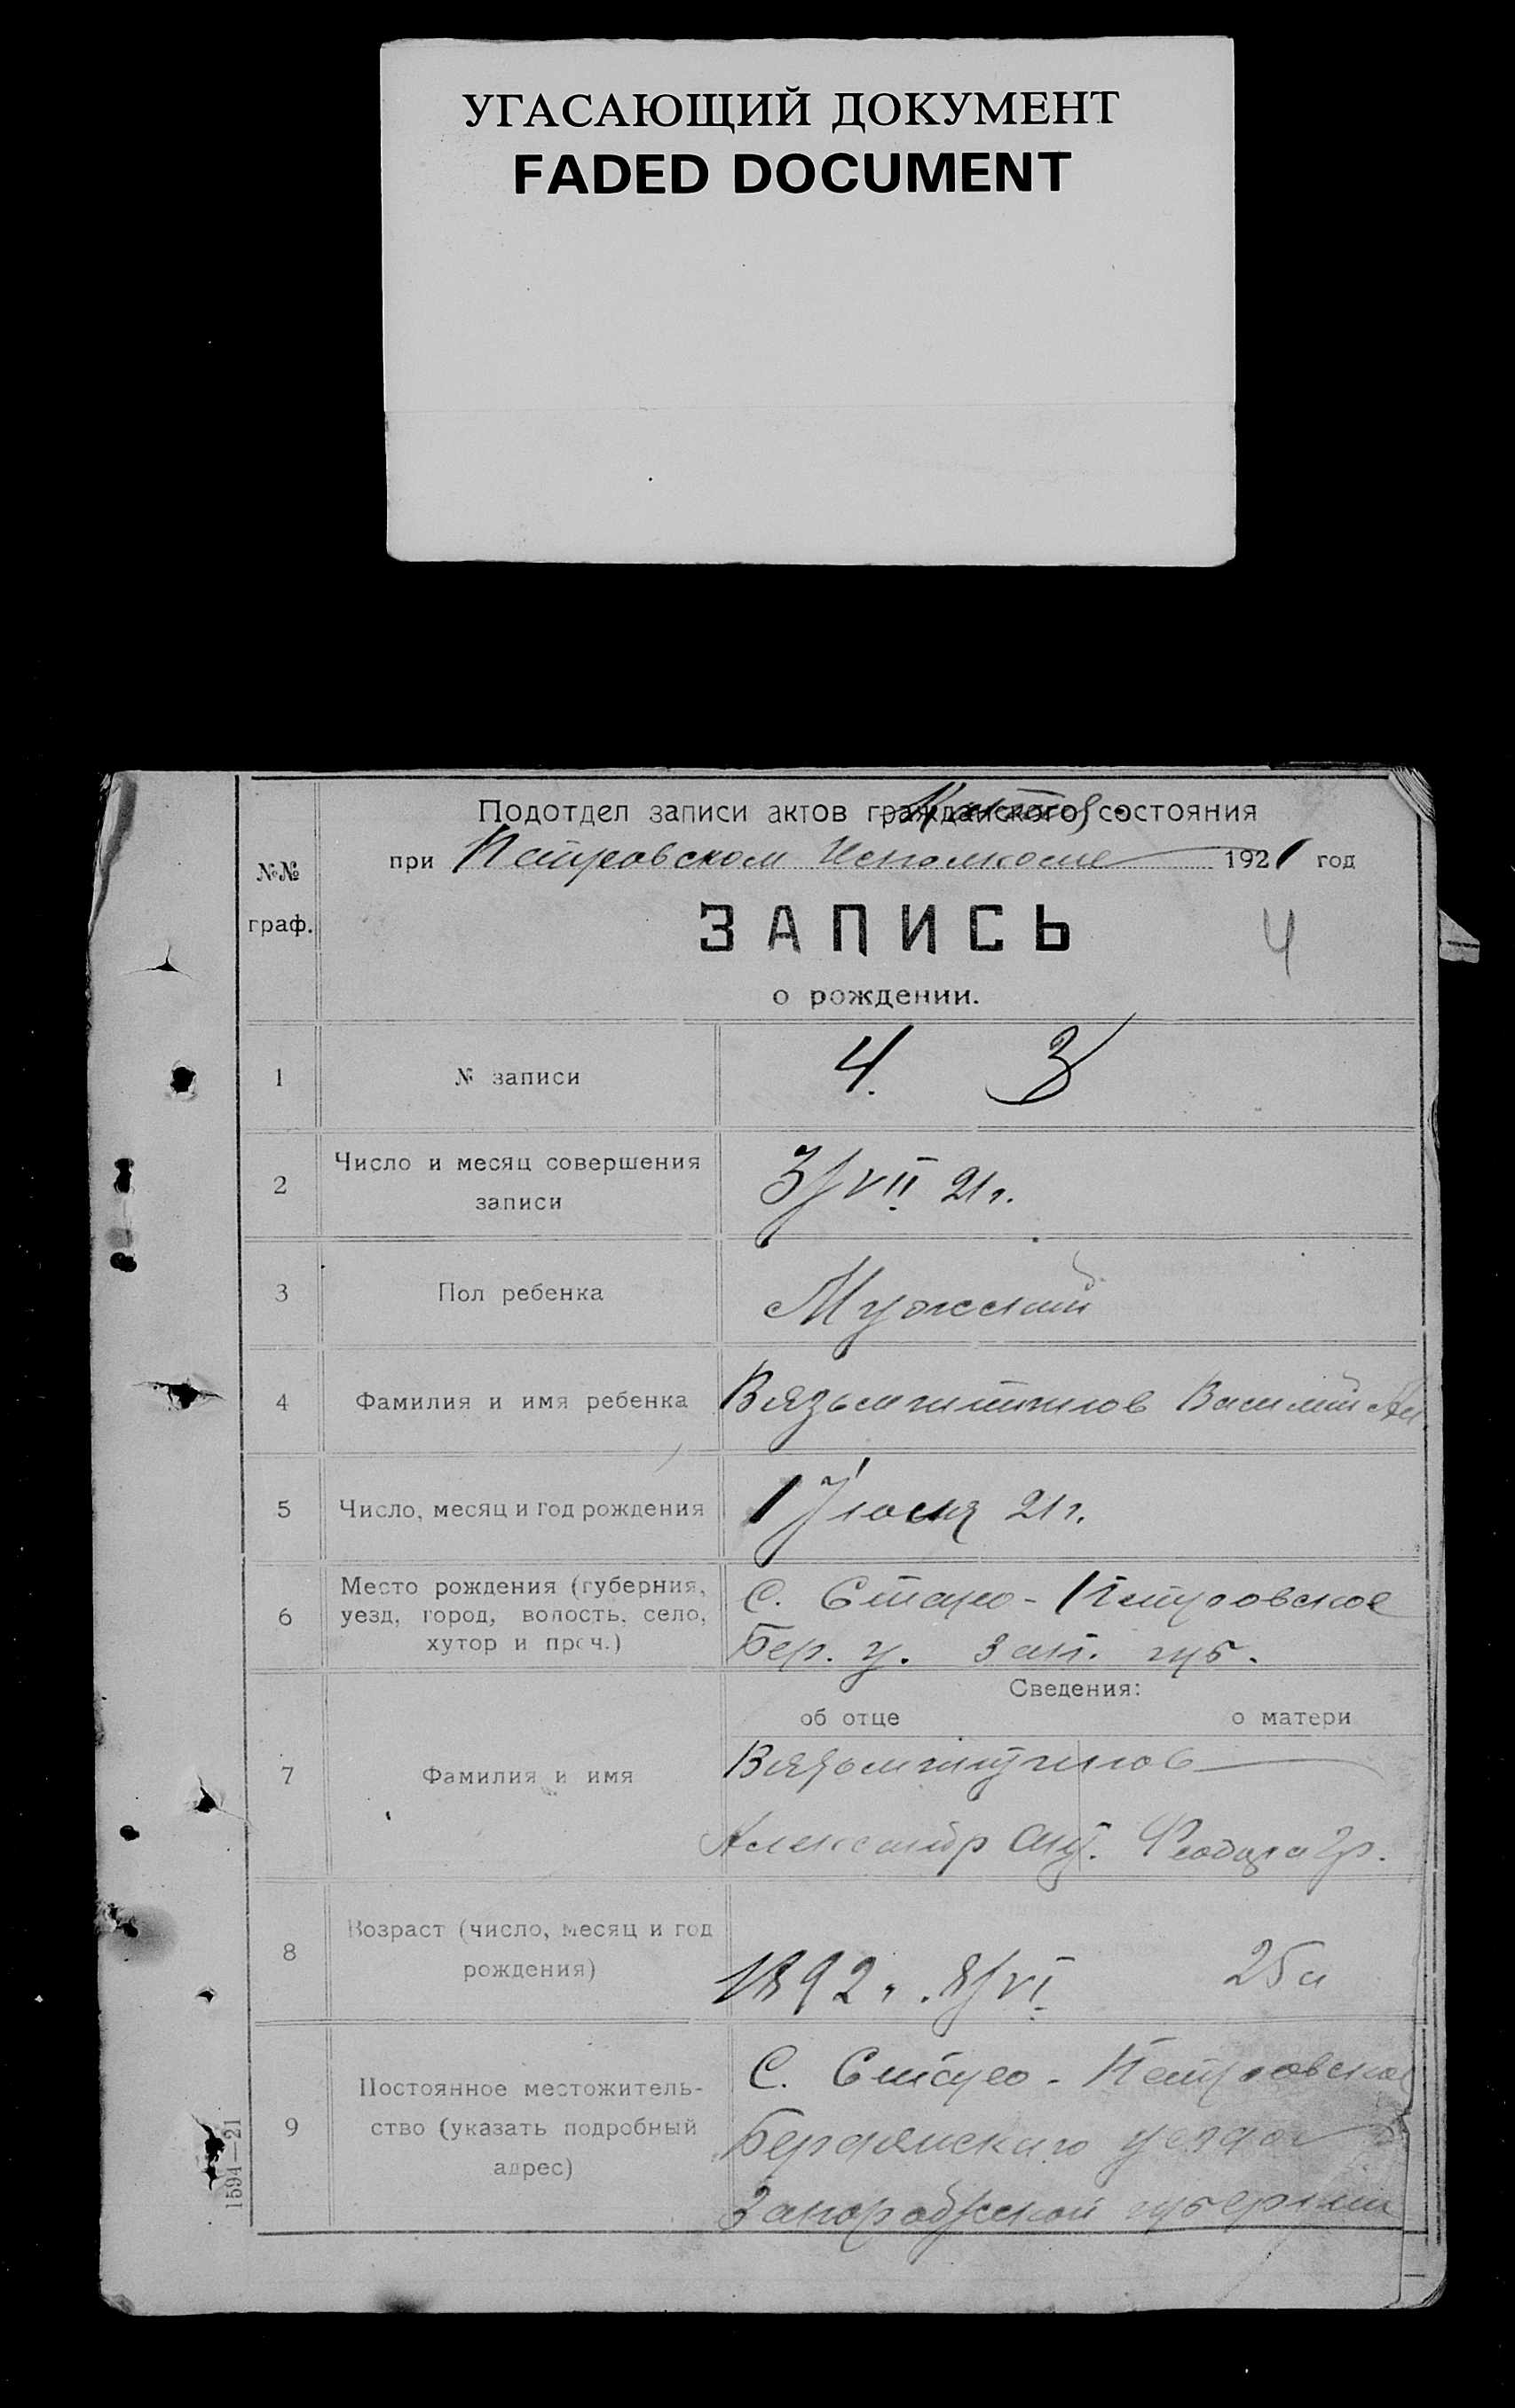 УГАСАЮЩИЙ ДОКУМЕНТ
FADED DOCUMENT
Подотдел записи актов гражданского состояния
при Петровском Исполкоме 1921 год
№№
граф.
ЗАПИСЬ
4
о рождении.
1 № записи 4. 3
2 Число и месяц совершения
записи
3/VII 21 г.
3 Пол ребенка Мужский
4 Фамилия и имя ребенка Вязьмитинов Василий Ал
5 Число, месяц и год рождения 1 Июля 21 г.
6 Место рождения (губерния,
уезд, город, волость, село,
хутор и проч.)
С. Старо-Петровское
Бер. у. Зап. губ.
Сведения:
об отце о матери
7 Фамилия и имя
Вязьмитинов
Александр Феодора Гр.
8 Возраст (число, месяц и год
рождения)
1892 г. 8/VI 25 л
9 Постоянное местожитель-
ство (указать подробный
адрес)
С. Старо-Петровское
Бердянскаго уезда
Запорожской губернии
1594—21